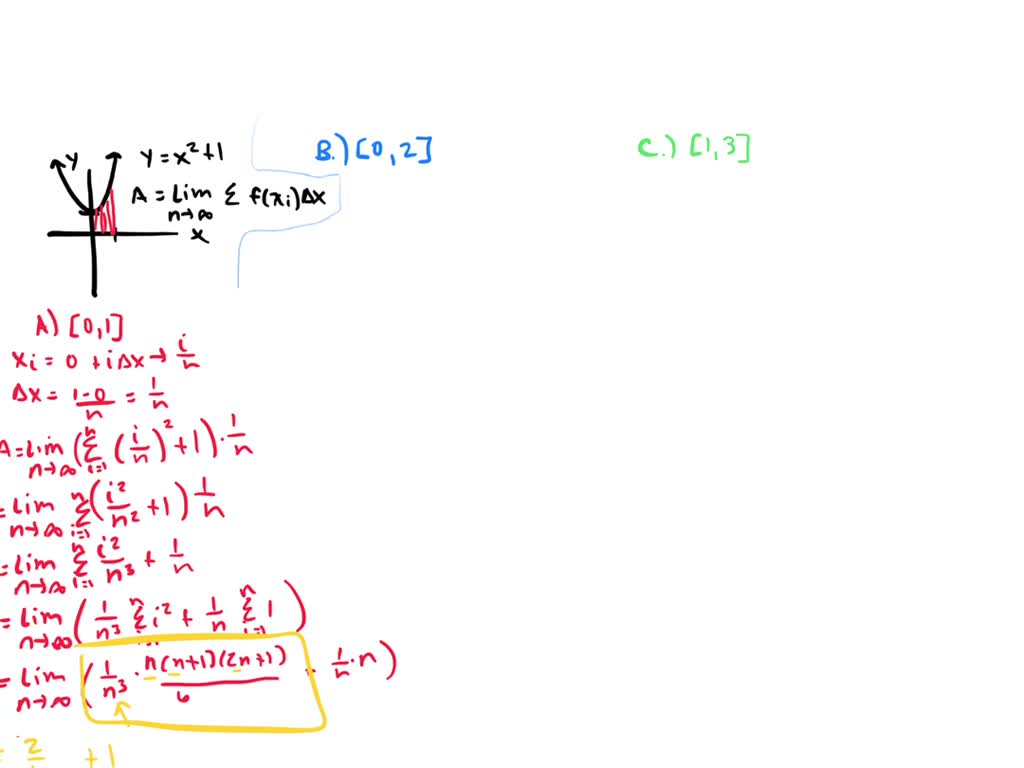 y
y = x²+1
A = Lim n→∞ Σ f(xi)Δx
x
A) [0,1]
xi = 0 + iΔx → i/n
Δx = 1-0/n = 1/n
A = Lim n→∞ (Σ i=1 n (i/n)² + 1) · 1/n
= Lim n→∞ Σ i=1 n (i²/n² + 1) 1/n
= Lim n→∞ Σ i=1 n i²/n³ + 1/n
= Lim n→∞ (1/n³ Σ n i² + 1/n Σ i=1 n 1)
= Lim n→∞ (1/n³ · n(n+1)(2n+1)/6 + 1/n · n)
= 2/ + 1
B.) [0,2]
C.) [1,3]